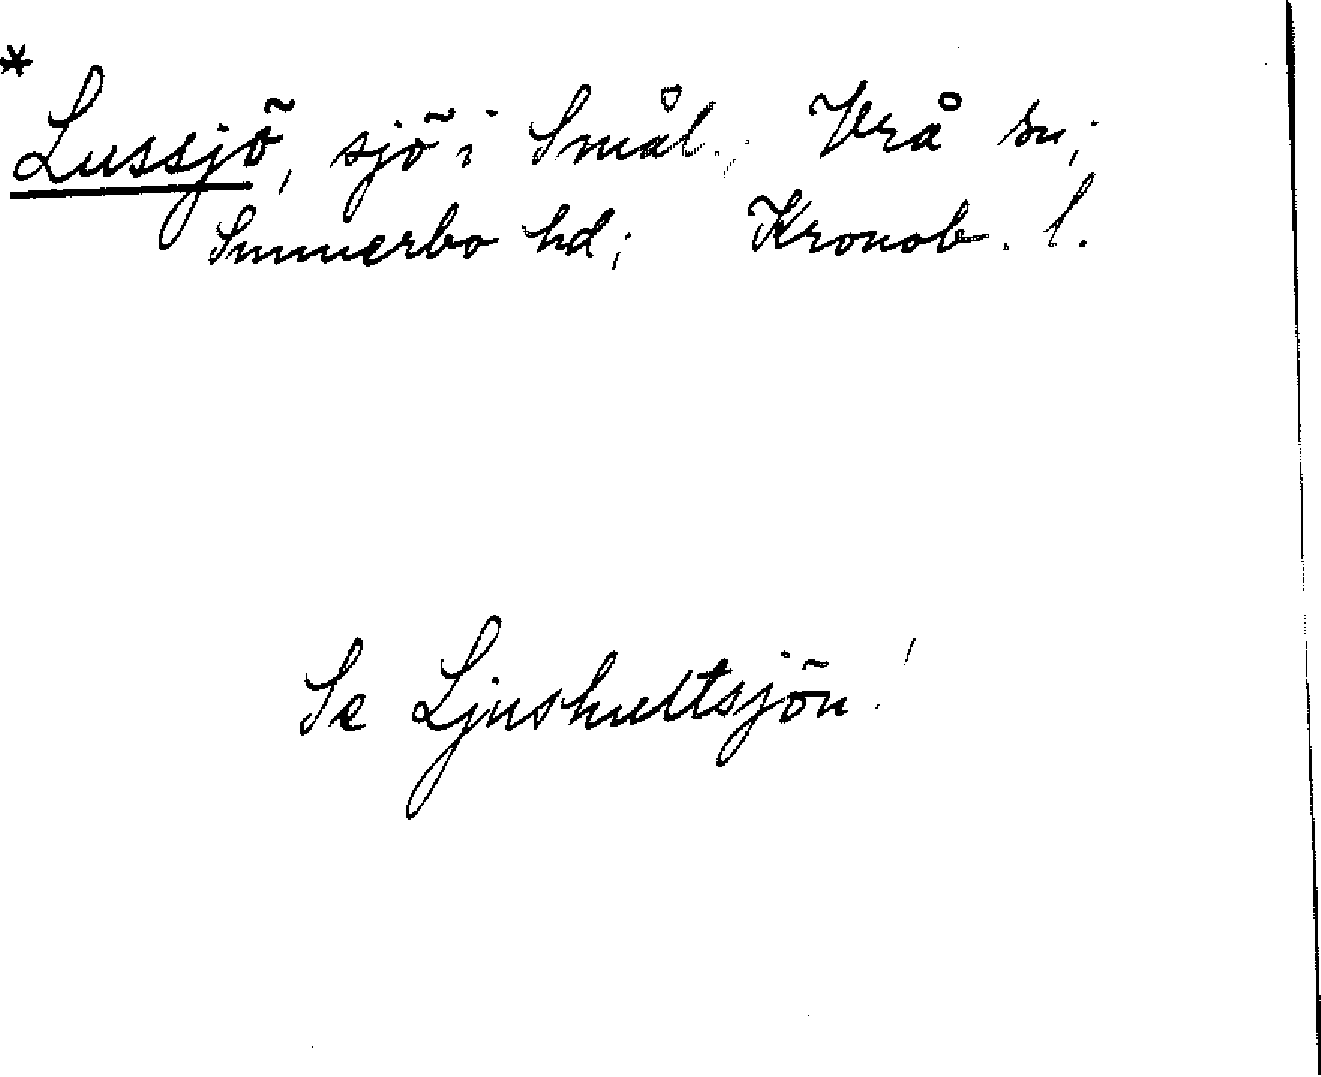 *
Lussjö, sjö i Smål.; Vrå sn;
Sunnerbo hd; Kronob. l.
Se Ljushultsjön!